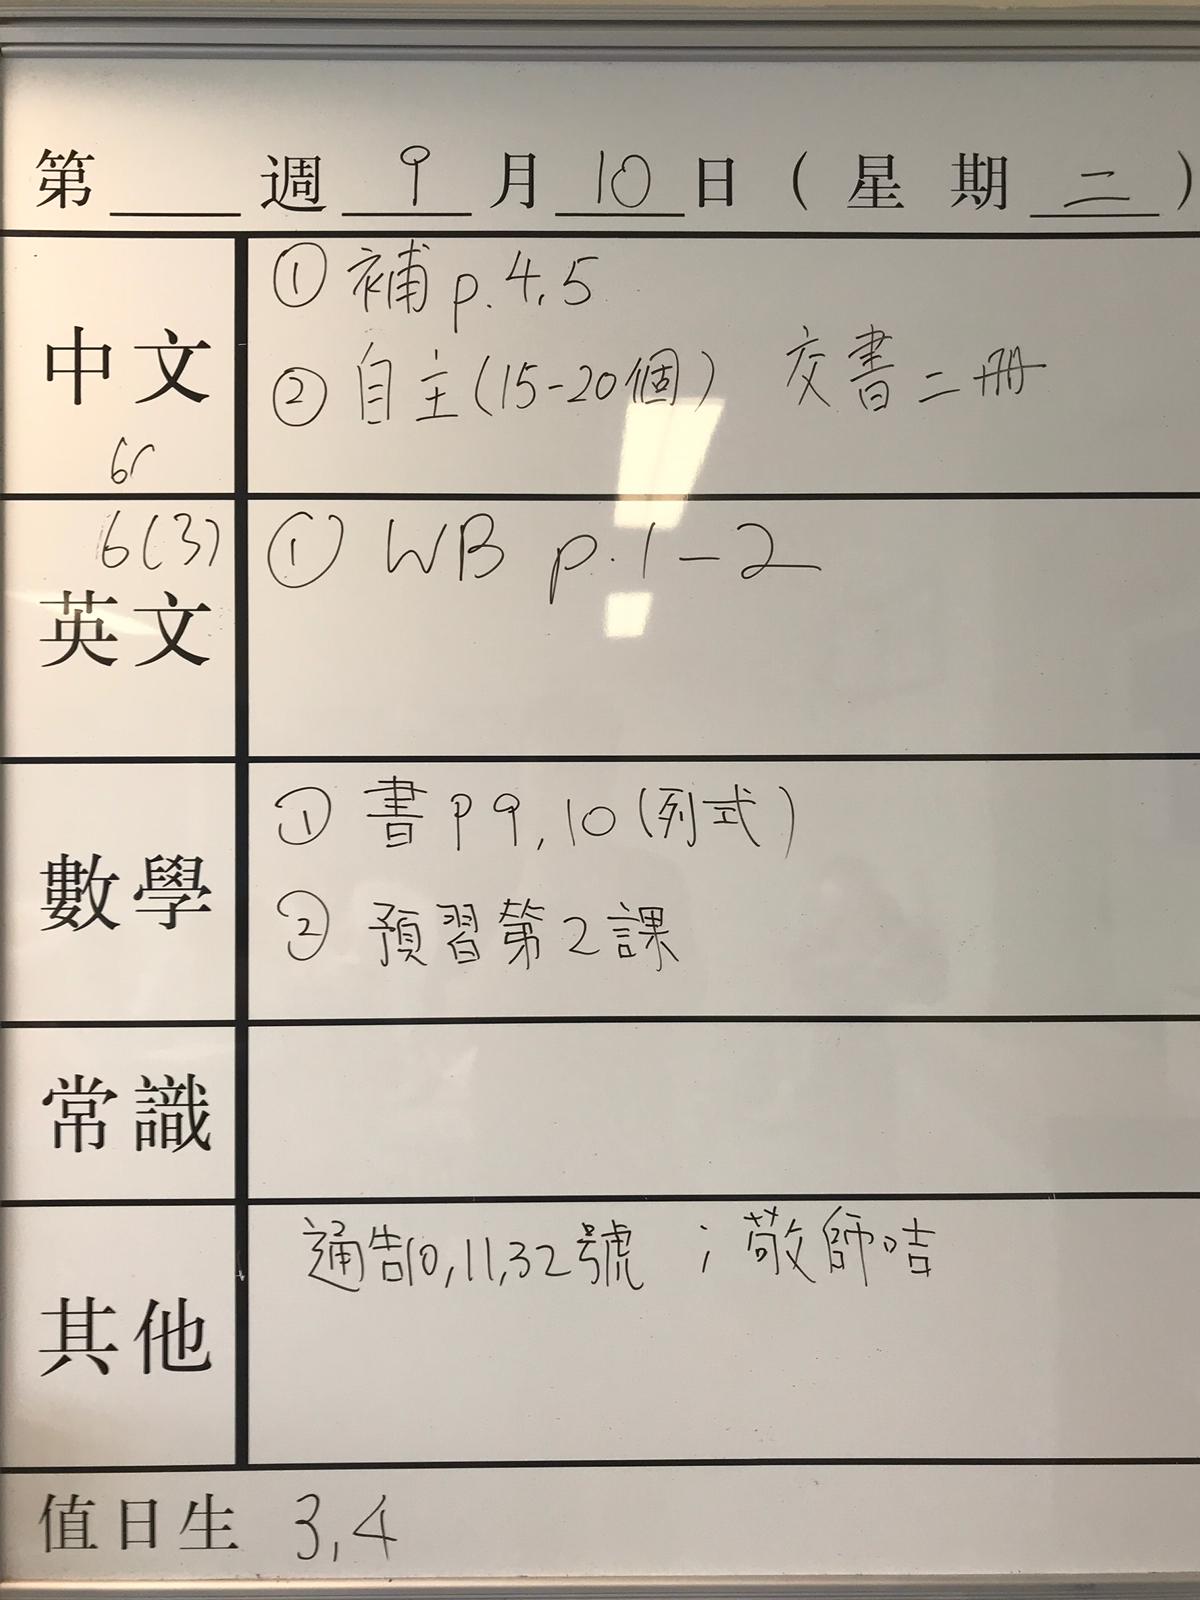 第 週 9 月 10 日 ( 星 期 二 )
中文
① 補 p. 4, 5
② 自主 (15-20個) 交書二冊
6r
6(3)
英文
① WB p. 1-2
數學
① 書 P 9, 10 (列式)
② 預習第2課
常識
其他
通告10, 11, 32號 ; 敬師咭
值日生 3, 4